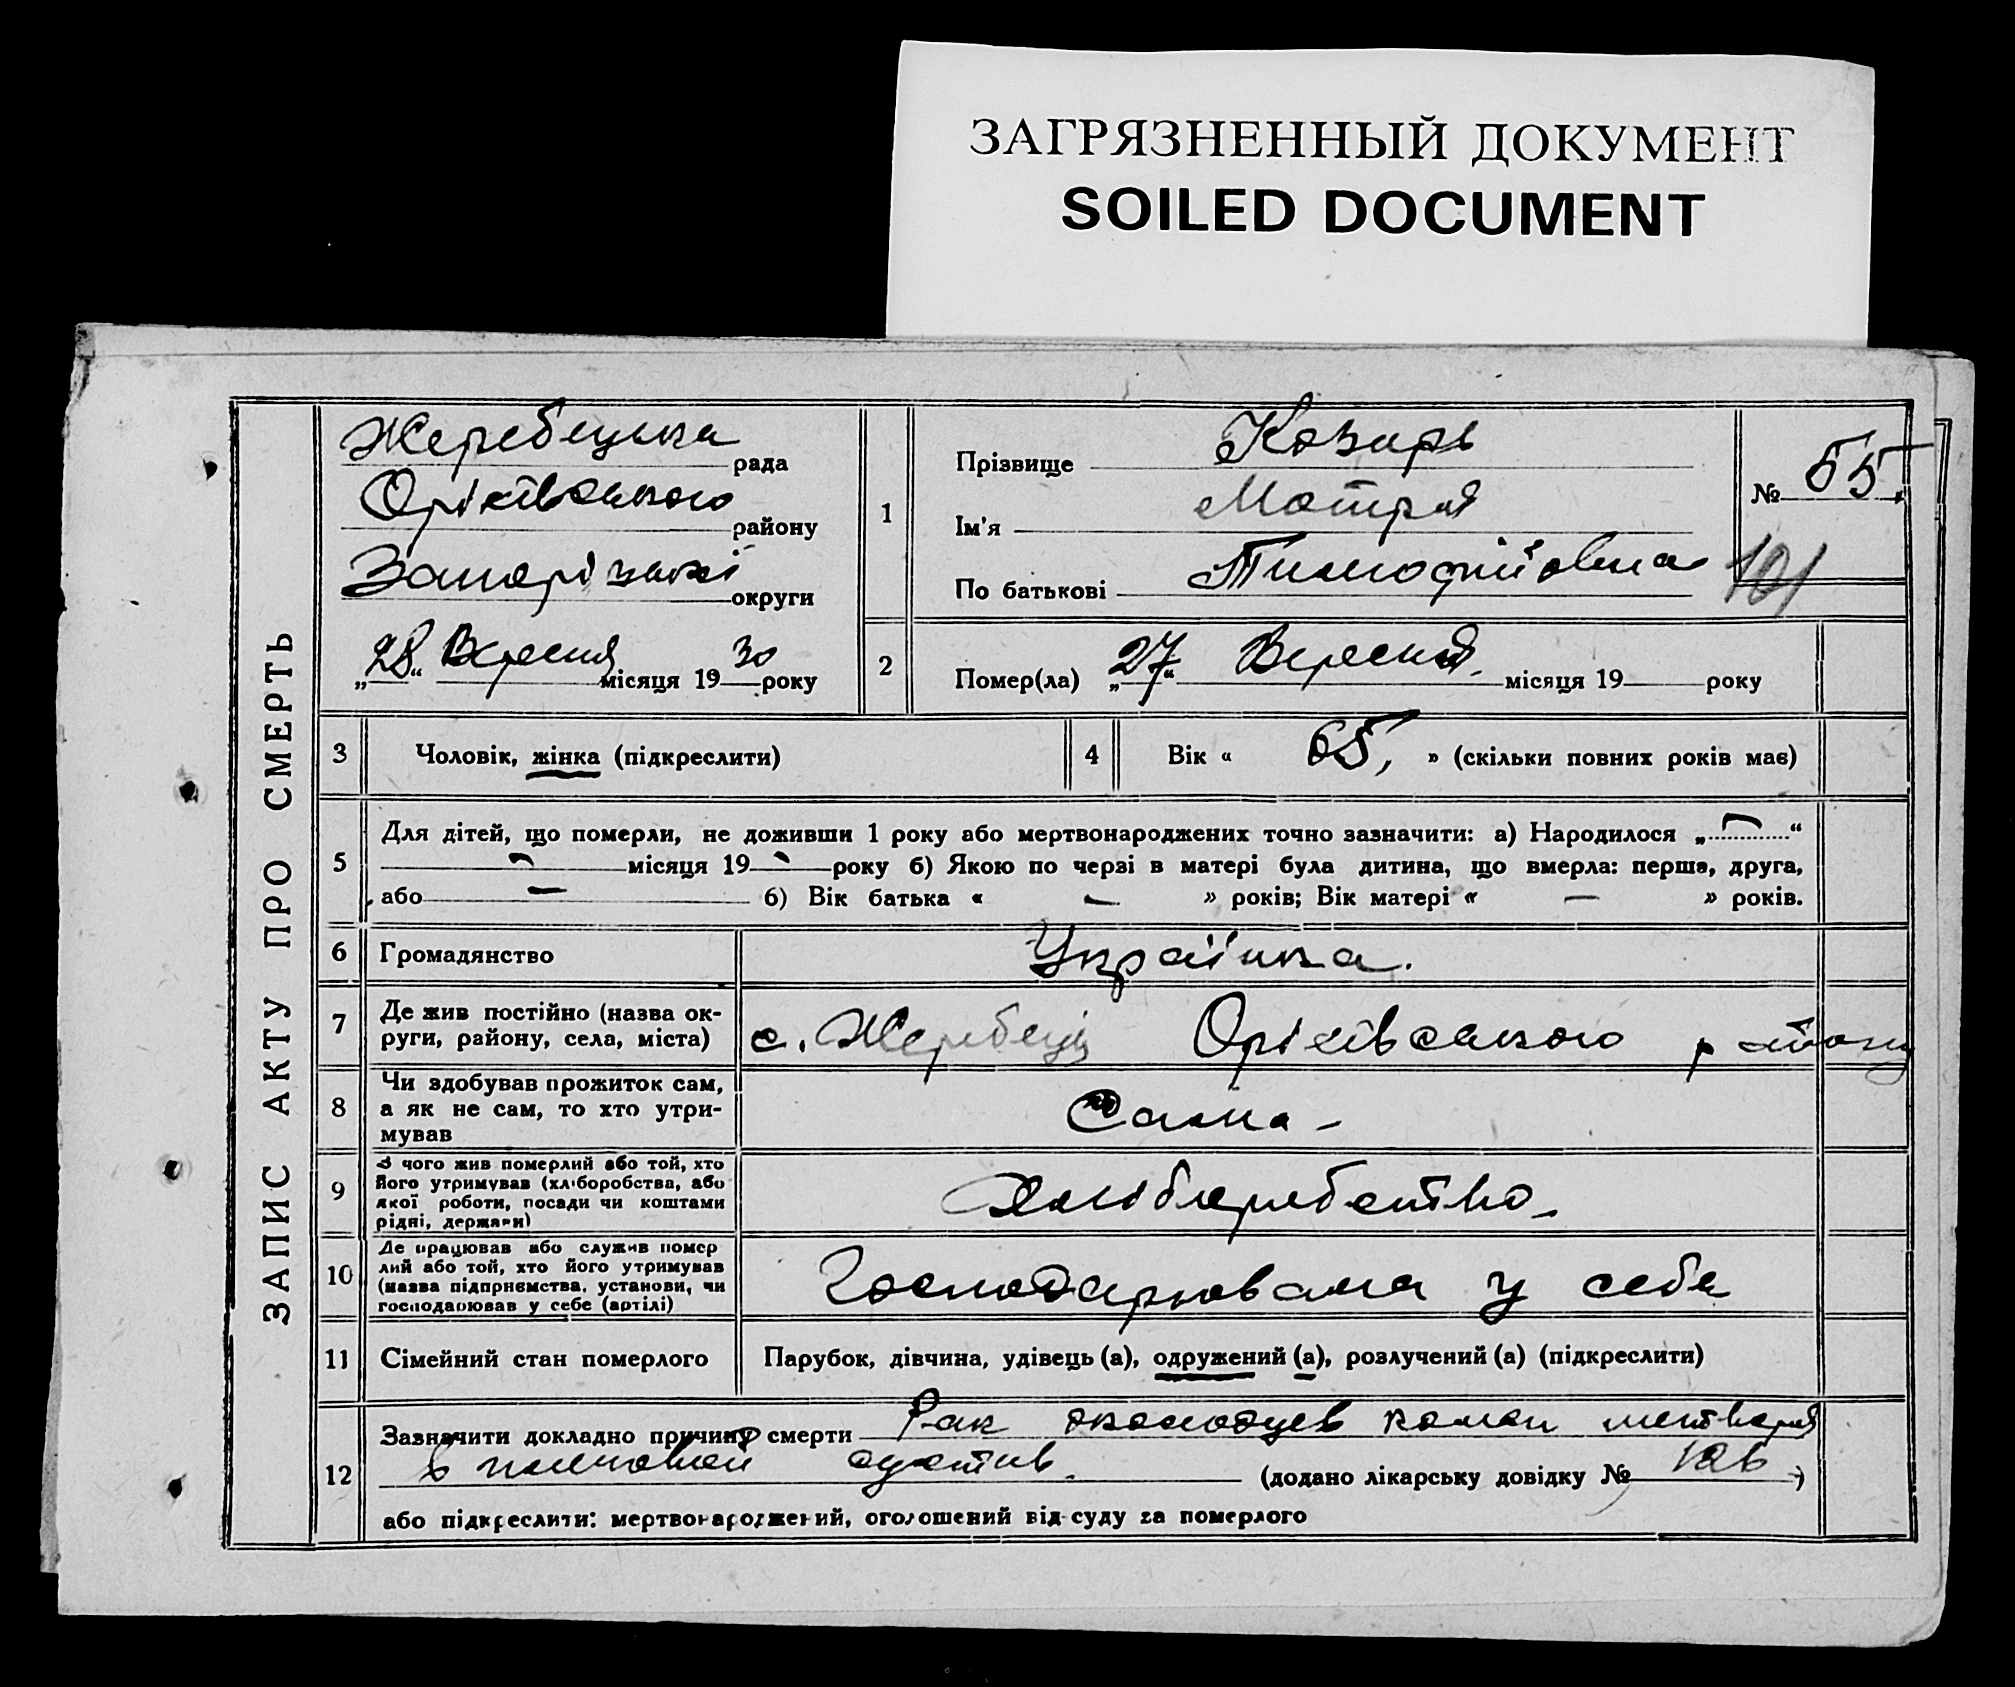 ЗАГРЯЗНЕННЫЙ ДОКУМЕНТ
SOILED DOCUMENT
ЗАПИС АКТУ ПРО СМЕРТЬ
Жеребецька рада
Оріхівського району
Запорізької округи
„28“ Вересня місяця 1930 року
1
Прізвище Козарь
Ім'я Мотря
По батькові Тимофіївна
№ 55.
101
2
Помер(ла) „27“ Вересня місяця 19 року
3 Чоловік, жінка (підкреслити)
4 Вік « 65, » (скільки повних років має)
5 Для дітей, що померли, не доживши 1 року або мертвонароджених точно зазначити: а) Народилося „ — “
— місяця 19 — року б) Якою по черзі в матері була дитина, що вмерла: перша, друга,
або — б) Вік батька « — » років; Вік матері « — » років.
6 Громадянство Українка.
7 Де жив постійно (назва ок-
руги, району, села, міста) с. Жеребець Оріхівського району
8 Чи здобував прожиток сам,
а як не сам, то хто утри-
мував Сама -
9 З чого жив померлий або той, хто
його утримував (хліборобства, або
якої роботи, посади чи коштами
рідні, держави) Хліборобство
10 Де працював або служив помер
лий або той, хто його утримував
(назва підприємства, установи, чи
господарював у себе (артілі) Господарювала у себе
11 Сімейний стан померлого Парубок, дівчина, удівець (а), одружений (а), розлучений (а) (підкреслити)
12 Зазначити докладно причину смерти Рак
(додано лікарську довідку № )
або підкреслити: мертвонароджений, оголошений від суду за померлого